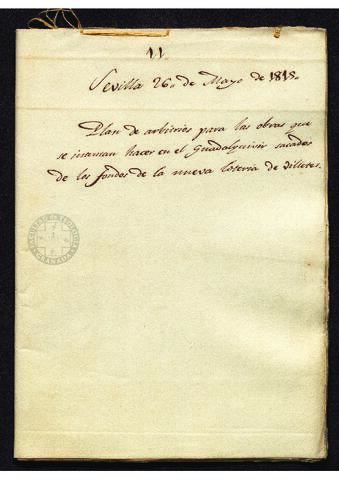 11
Sevilla 26,, de Mayo de 1818.
Plan de arbitrios para las obras que
se intentan hacer en el Guadalquivir sacados
de los fondos de la nueva loteria de villetes.